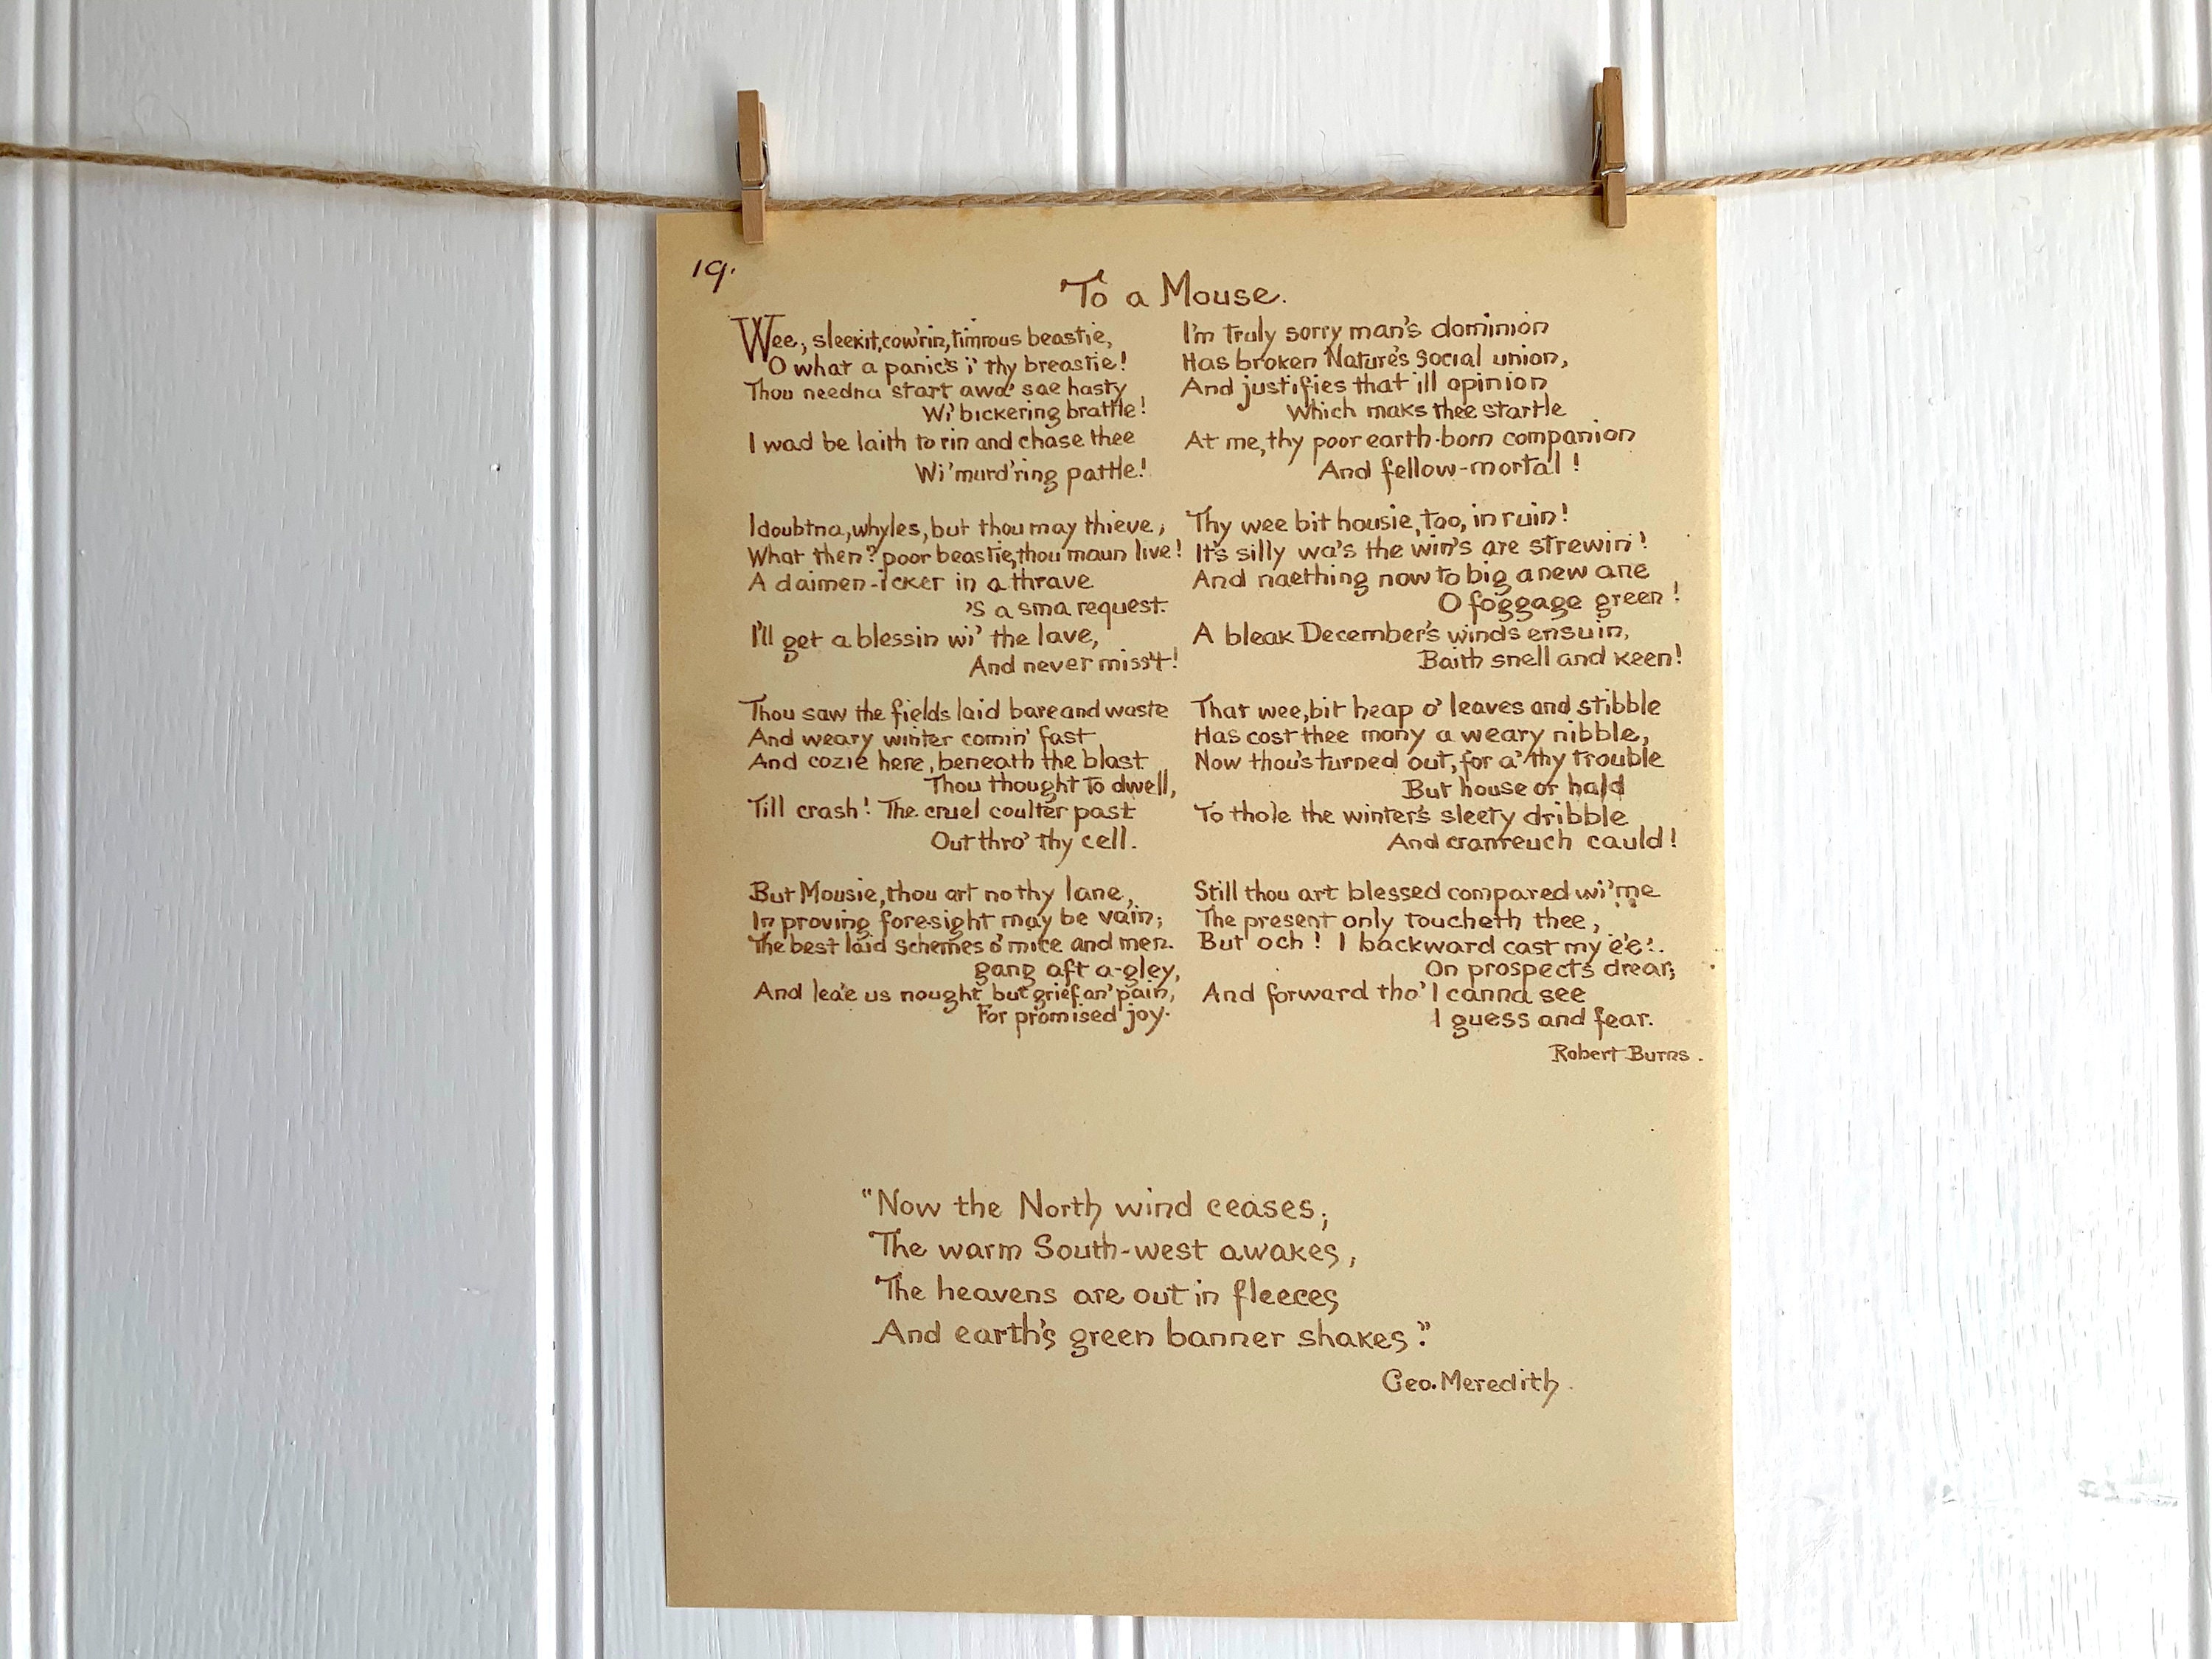 19.
To a Mouse.
Wee, sleekit, cow'rin, tim'rous beastie,
O what a panic's i' thy breastie!
Thou needna start awa' sae hasty
Wi' bickering brattle!
I wad be laith to rin and chase thee
Wi' murd'ring pattle!
I doubtna, whyles, but thou may thieve,
What then? poor beastie, thou maun live!
A daimen-icker in a thrave
'S a sma request.
I'll get a blessin wi' the lave,
And never miss't!
Thou saw the fields laid bare and waste
And weary winter comin' fast
And cozie here, beneath the blast
Thou thought to dwell,
Till crash! The cruel coulter past
Out thro' thy cell.
But Mousie, thou art no thy lane,
In proving foresight may be vain;
The best laid schemes o' mice and men.
gang aft a-gley,
And lea'e us nought but grief an' pain,
For promised joy.
I'm truly sorry man's dominion
Has broken Nature's social union,
And justifies that ill opinion
Which maks thee startle
At me, thy poor earth-born companion
And fellow-mortal!
Thy wee bit housie, too, in ruin!
It's silly wa's the win's are strewin'!
And naething now to big a new ane
O foggage green!
A bleak December's winds ensuin,
Baith snell and keen!
That wee, bit heap o' leaves and stibble
Has cost thee mony a weary nibble,
Now thou's turned out, for a' thy trouble
But house or hald
To thole the winter's sleety dribble
And cranreuch cauld!
Still thou art blessed compared wi' me
The present only toucheth thee,
But och! I backward cast my e'e!.
On prospects drear;
And forward tho' I canna see
I guess and fear.
Robert Burns.
"Now the North wind ceases;
The warm South-west awakes,
The heavens are out in fleeces
And earth's green banner shakes."
Geo. Meredith.